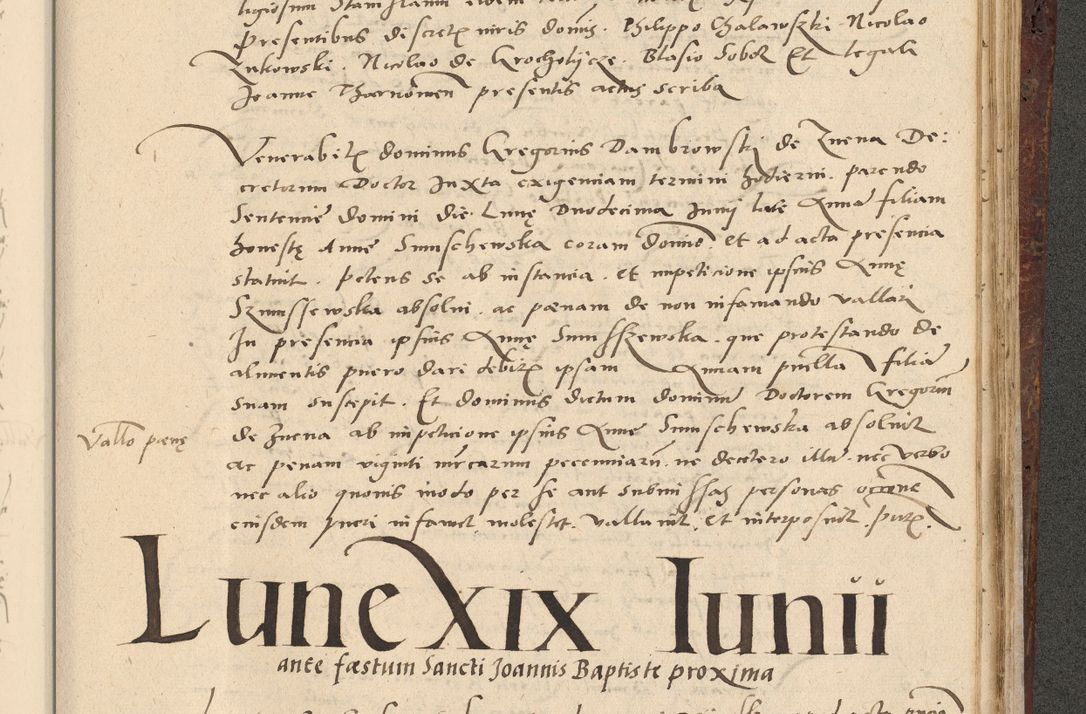 Presentibus discretis viris domis. Philippo Chalawszki. Nicolao
Zukowski. Nicolao de Grocholycze. Blasio Sobek Et legali
Joanne Tharnowien presentis actus scriba
Venerabilis dominus Gregorius Dambrowski de Znena De:
cretorum Doctor Juxta exigenciam termini hodierni. parendo
Sentencie domini die Lunę Duodecima Junij late Annā filiam
honestę Anne Sunschewska coram domino. et ad acta presencia
statuit. petens se ab instancia. et impeticione ipsius Annę
Szunssewska absolui. ac pœnam de non infamando vallari
In presencia ipsius Annę Sunsszewska. que protestando de
alimentis puero dari debitis ipsam Annam puellā filiā
suam suscepit. Et dominus dictum dominū Doctorem Gregoriū
de Znena ab impeticione ipsius Anne Sunschewska absoluit
Vallō pœnę
ac penam viginti mrcarum pecuniarū. ne decetero illū. nec verbo
nec alio quouis modo per se aut submissas personas occōne
eiusdem pueri infamet molestet. vallauit. et interposuit. pntꝭ.
Lune XIX Iunii
ante fæstum Sancti Joannis Baptiste proxima